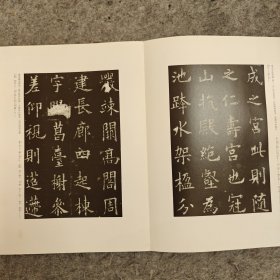 成之宮此則隨
之仁壽宮也冠
山抗殿絕壑為
池跨水架楹分
巖竦闕高閣周
建長廊四起棟
宇膠葛臺榭參
差仰視則迢遰